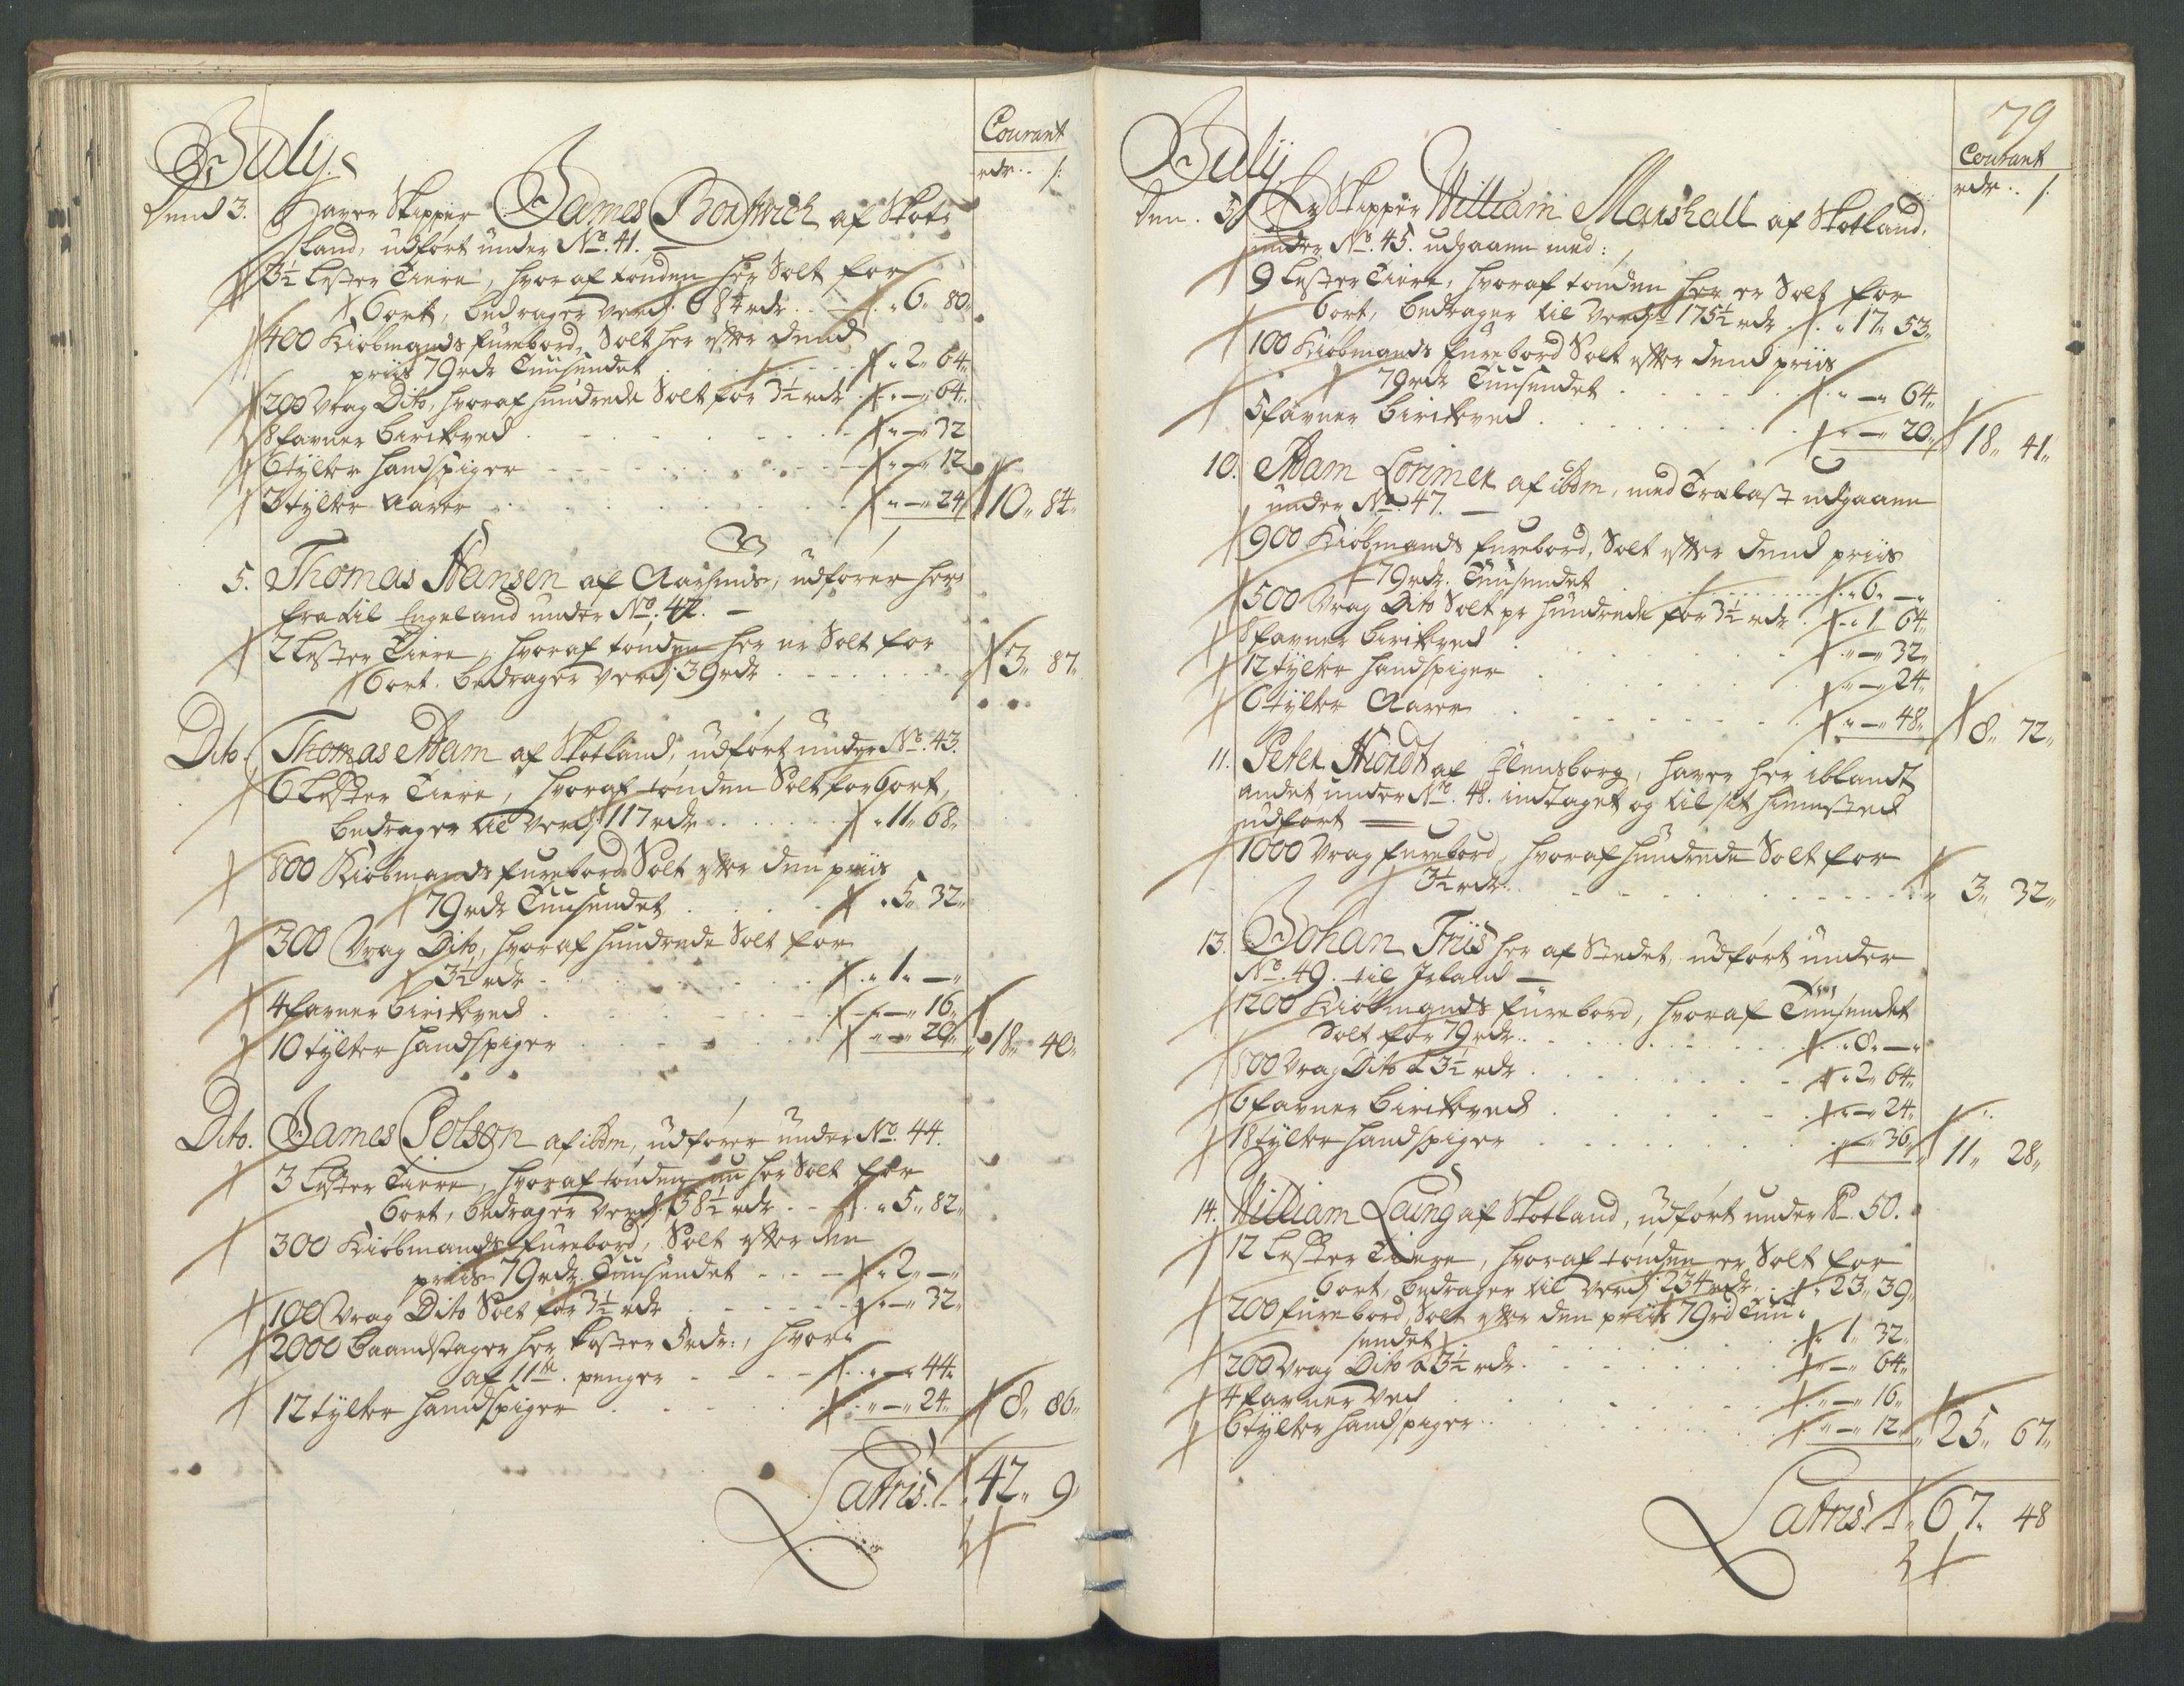 July.
Courant
rdr.. s:
Dend 3. Haver Skipper James Borthwich af Skot¬
land, udført under No. 41. —
3½ Lester Tiere, hvoraf tønden her Solt for
6 ort, bedrager Verdj. 68¼ rdr. „ 6„ 80„
400 Kiøbmands furebord, Solt her efter dend
priis 79 rdr Tuusendet „ 2„ 64„
200 Vrag Dito, hvoraf hundrede Solt for 3½ rdr „ — 64„
8 favner birkeved „ — 32
6 tylter handspiger „ — 12
3 tylter Aarer „ — 24 10„ 84„
5. Thomas Hansen af Aarhuus, udfører her¬
fra til Engeland under No. 42. —
2 Lester Tiere, hvoraf tønden her er Solt for
6 ort. bedrager Verdj. 39 rdr 3„ 87„
Dito. Thomas Adam af Skotland, udført under No. 43.
6 Lester Tiere, hvoraf tønden Solt for 6 ort,
bedrager til Verdj. 117 rdr „ 11„ 68„
800 Kiøbmands furebord Solt efter den priis
79 rdr Tuusendet „ 5„ 32„
300 Vrag Dito, hvoraf hundrede Solt for
3½ rdr „ 1„ —„
4 favner birkeved „ — 16„
10 tylter handspiger „ — 20„ 18„ 40„
Dito. James Polson af ibdm, udfører under No. 44.
3 Lester Tiere, hvoraf tønden nu her Solt for
6 ort, bedrager Verdj. 58½ rdr „ 5„ 82„
300 Kiøbmands furebord, Solt efter den
priis 79 rdr. Tuusendet „ 2„ —„
100 Vrag Dito Solt for 3½ rdr „ — 32„
2000 baandstager her koster 5 rdr:, hvor¬
af 11te. penger „ — 44„
12 tylter handspiger „ — 24„ 8„ 86„
Latris. 42„ 9„
79
July
Courant
rdr.. s:
Den. 5. Er Skipper William Marshall af Skotland,
under No. 45. udgaaen med:
9 Lester Tiere, hvoraf tønden her er Solt for
6 ort, bedrager til Verdj. 175½ rdr „ 17„ 53„
100 Kiøbmands furebord Solt efter dend priis
79 rdr Tuusendet „ — 64„
5 favner birkeved „ — 20„ 18„ 41„
10. Adam Lorimer af ibdm, med Trælast udgaaen
under No. 47. —
900 Kiøbmands furebord, Solt efter dend priis
79 rdr. Tuusendet „ 6„ —„
500 Vrag Dito Solt pr hundrede for 3½ rdr „ 1„ 64„
8 favner birkeved „ — 32„
12 tylter handspiger „ — 24„
6 tylter Aarer „ — 48„ 8„ 72„
11. Peter Hiordt af Flensborg, haver her iblandt
andet under No. 48. indtaget og til sit hiemsted
udført —
1000 Vrag furebord, hvoraf hundrede Solt for
3½ rdr. 3„ 32„
13. Johan Friis her af Stedet, udført under
No. 49. til Irland —
1200 Kiøbmands furebord, hvoraf Tuusendet
Solt for 79 rdr. „ 8„ —„
800 Vrag Dito a 3½ rdr „ 2„ 64„
6 favner birkeved „ — 24„
18 tylter handspiger „ — 36„ 11„ 28„
14. William Laing af Skotland, udført under No. 50.
12 Lester Tiere, hvoraf tønden er Solt for
6 ort, bedrager til Verdj. 234 rdr „ 23„ 39„
200 furebord, Solt efter den priis 79 rd Tuu¬
sendet „ 1„ 32„
200 Vrag Dito a 3½ rdr „ — 64„
4 favner Ved „ — 16„
6 tylter handspiger „ — 12„ 25„ 67„
Latris. 67„ 48